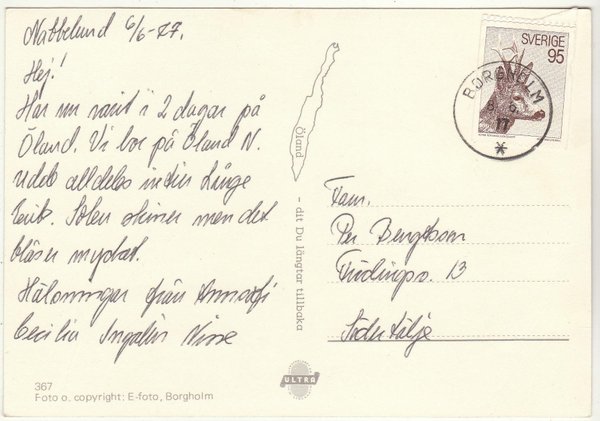 Nabbelund 6/6-77.
Hej!
Har nu varit i 2 dagar på
Öland. Vi bor på Öland N.
udde alldeles intill Långe
Erik. Solen skiner men det
blåser mycket.
Hälsningar från
Cecilia Ingalill Nisse
367
Foto o. copyright: E-foto, Borgholm
Öland - dit Du längtar tillbaka
ULTRA
SVERIGE
95
BORGHOLM
8. 6.
77
Fam.
Per Bengtsson
13
Södertälje